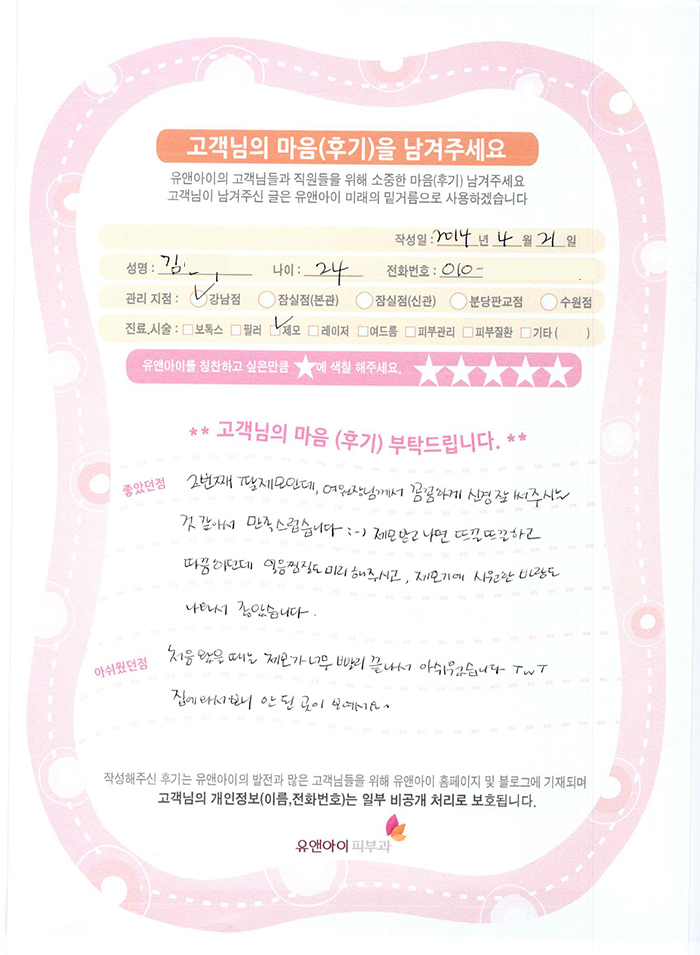 고객님의 마음(후기)을 남겨주세요
유앤아이의 고객님들과 직원들을 위해 소중한 마음(후기) 남겨주세요
고객님이 남겨주신 글은 유앤아이 미래의 밑거름으로 사용하겠습니다
작성일 : 2014 년 4 월 21 일
성명 : 김 나이 : 24 전화번호 : 010-
관리 지점 : 강남점 잠실점(본관) 잠실점(신관) 분당판교점 수원점
진료,시술 : 보톡스 필러 제모 레이저 여드름 피부관리 피부질환 기타 ( )
유앤아이를 칭찬하고 싶은만큼 ★에 색칠 해주세요. ★★★★★
** 고객님의 마음 (후기) 부탁드립니다. **
좋았던점 2번째 털제모인데, 여원장님께서 꼼꼼하게 신경 잘 써주시는
것 같아서 만족스럽습니다 :-) 제모받고나면 뜨끈뜨끈하고
따끔하던데 얼음찜질도 미리 해주시고, 제모기에 시원한 바람도
나와서 좋았습니다.
아쉬웠던점 처음 왔을 때는 제모가 너무 빨리 끝나서 아쉬웠습니다 TwT
집에 와서 보니 안 된 곳이 보여서요.
작성해주신 후기는 유앤아이의 발전과 많은 고객님들을 위해 유앤아이 홈페이지 및 블로그에 기재되며
고객님의 개인정보(이름,전화번호)는 일부 비공개 처리로 보호됩니다.
유앤아이 피부과